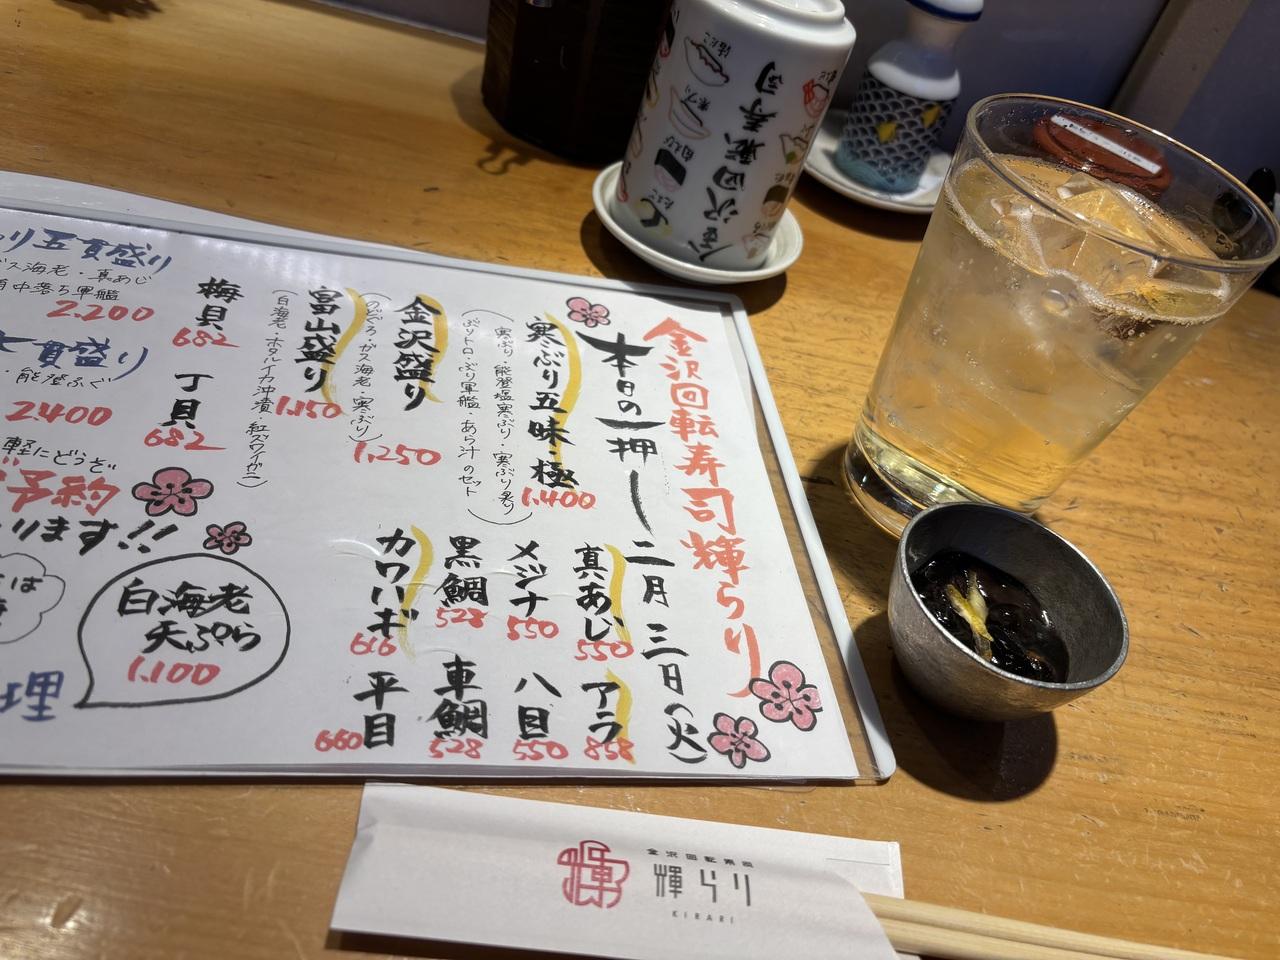 金沢回転寿司輝らり
本日の一押し
二月三日(火)
寒ぶり五味・極
(寒ぶり・能登塩寒ぶり・寒ぶり炙り
ぶりトロ・ぶり軍艦・あら汁のセット)
1,400
金沢盛り
(のどぐろ・ガス海老・寒ぶり)
1,250
富山盛り
(白海老・ホタルイカ沖漬・紅ズワイガニ)
1,150
梅貝
682
丁貝
682
真あじ
550
アラ
858
メジナ
550
八目
550
黒鯛
528
車鯛
528
カワハギ
616
平目
660
り五貫盛り
ス海老・真あじ
中落ち軍艦
2,200
貫盛り
・能登ふぐ
2,400
軽にどうぞ
予約
ります!!
白海老
天ぷら
1,100
は
理
金沢回転寿司
輝らり
KIRARI